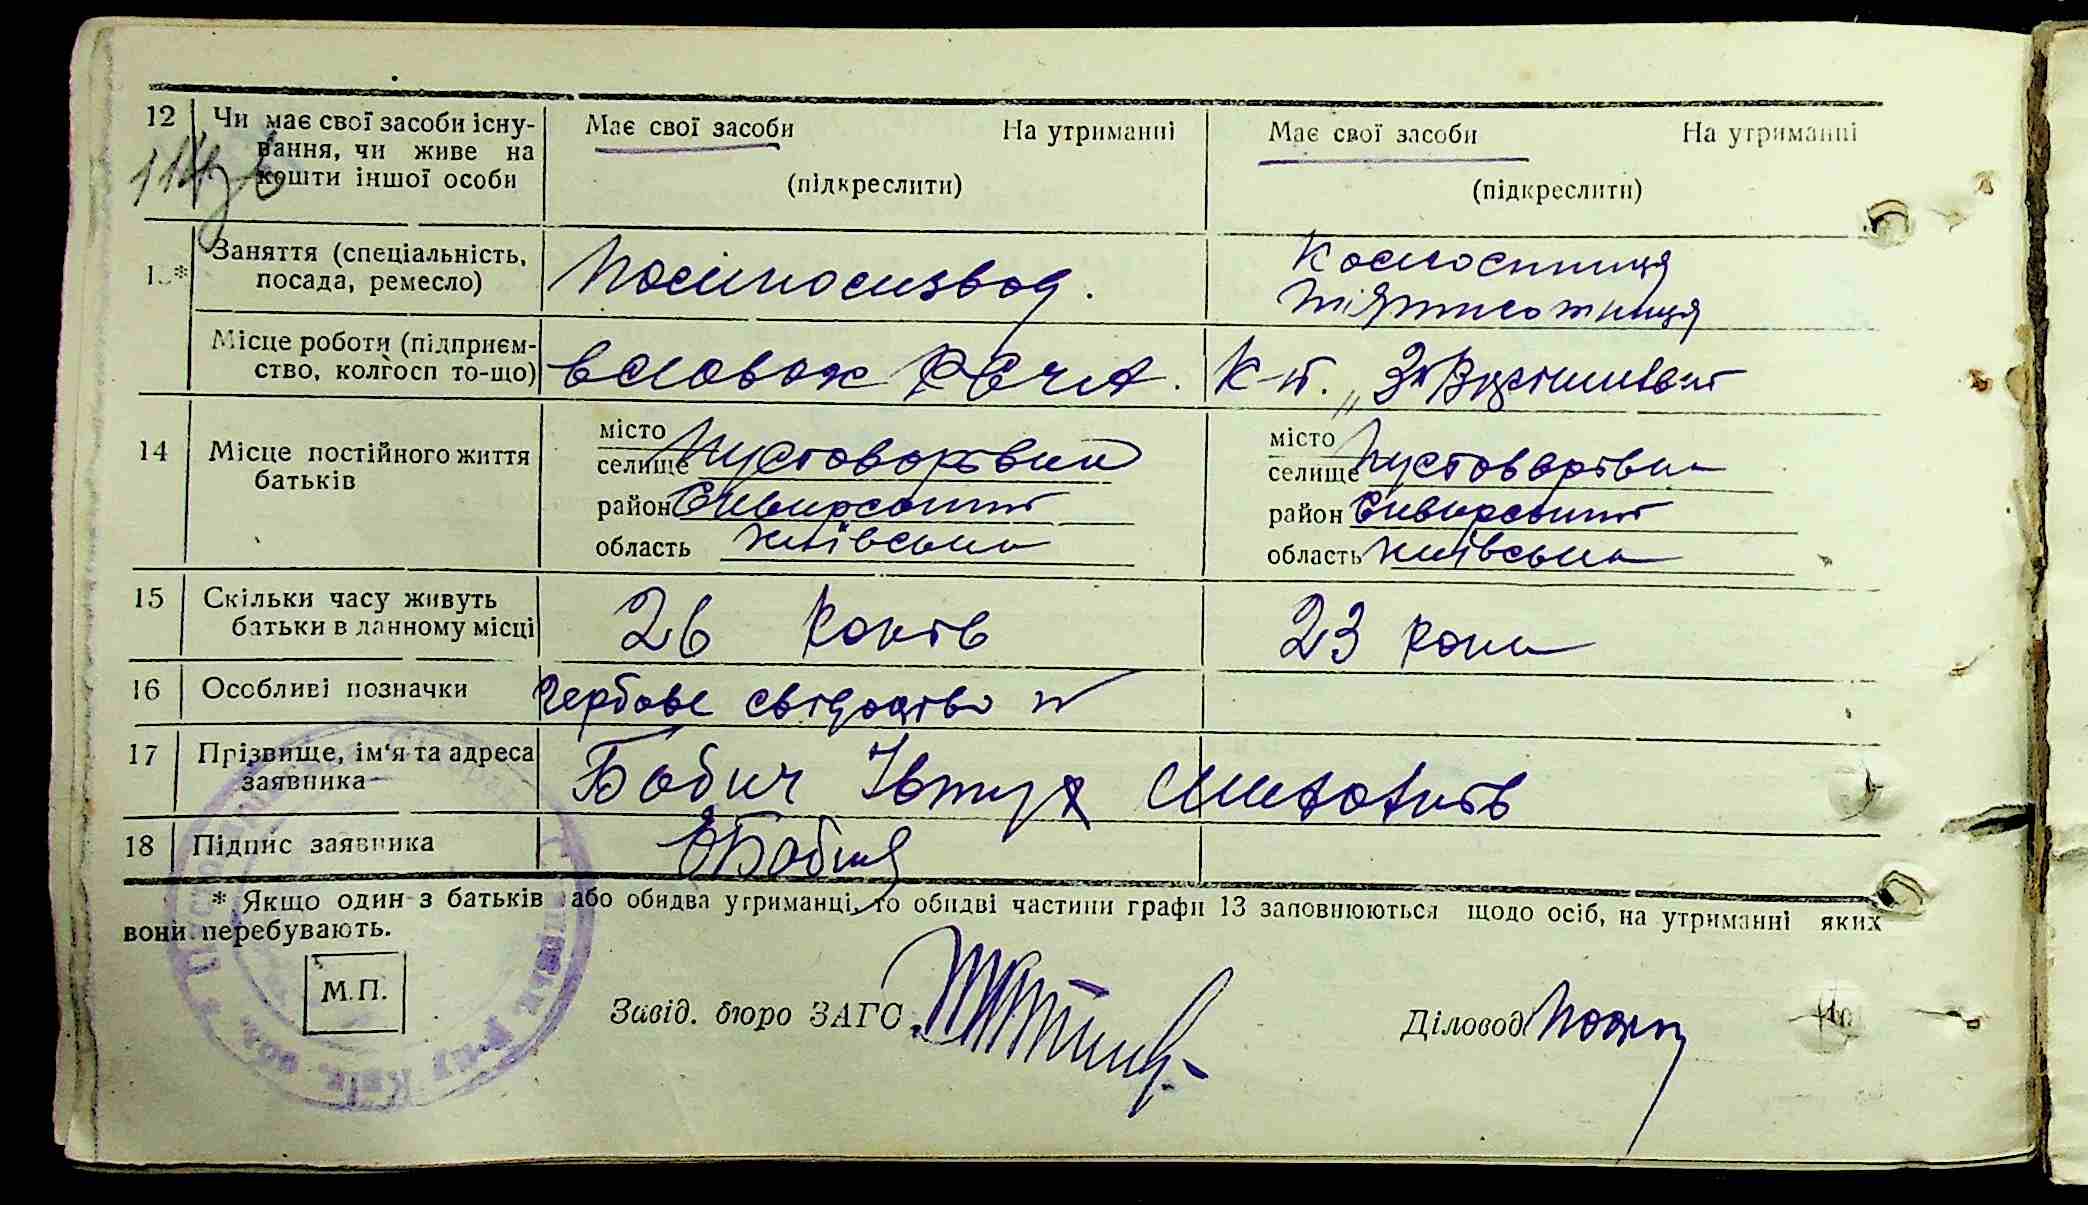 12 Чи має свої засоби існу-
вання, чи живе на
кошти іншої особи
Має свої засоби На утриманні
(підкреслити)
Має свої засоби На утриманні
(підкреслити)
Заняття (спеціальність,
посада, ремесло)
Колгоспниця
Місце роботи (підприєм-
ство, колгосп то-що)
К-п.
14 Місце постійного життя
батьків
місто
селище Пустоварівка
район Сквирський
область Київська
місто
селище Пустоварівка
район Сквирський
область Київська
15 Скільки часу живуть
батьки в данному місці
26 років
23 роки
16 Особливі позначки
Гербове свідоцтво
17 Прізвище, ім'я та адреса
заявника
Бабич Івтух
18 Підпис заявника
Бабич
* Якщо один з батьків або обидва утриманці, то обидві частини графи 13 заповнюються щодо осіб, на утриманні яких
вони перебувають.
М.П.
Завід. бюро ЗАГС
Діловод